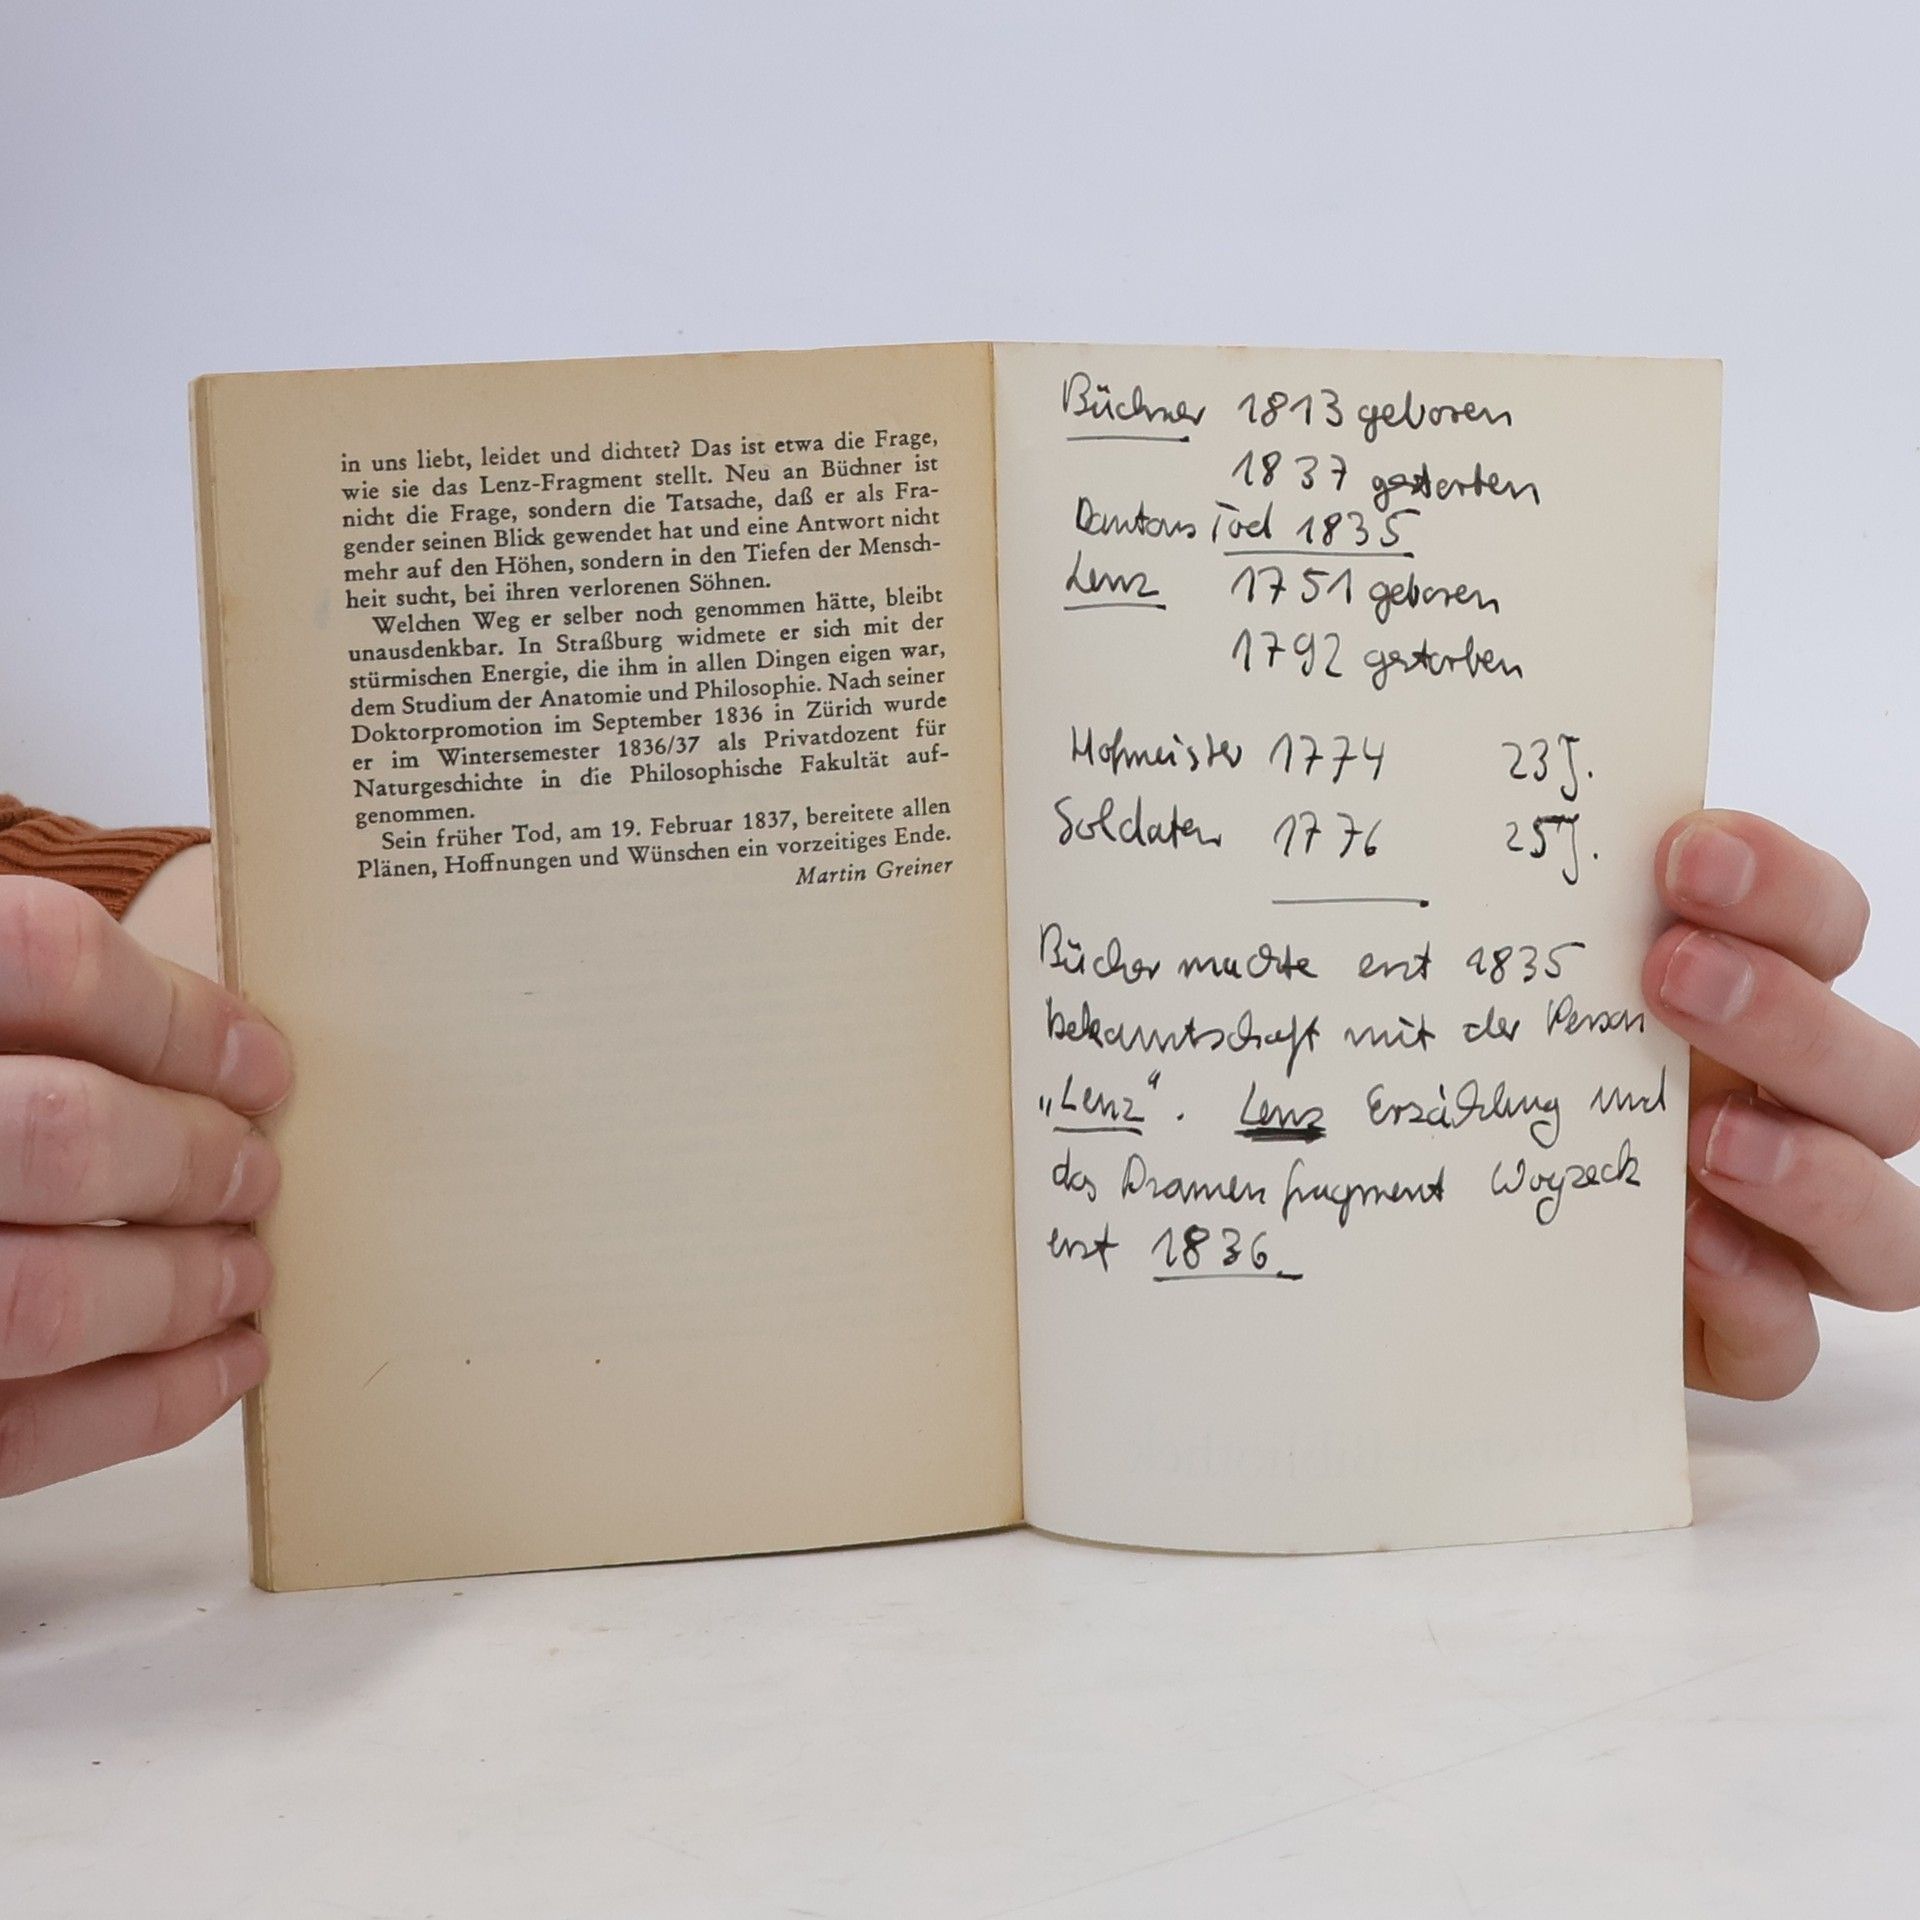 in uns liebt, leidet und dichtet? Das ist etwa die Frage,
wie sie das Lenz-Fragment stellt. Neu an Büchner ist
nicht die Frage, sondern die Tatsache, daß er als Fra-
gender seinen Blick gewendet hat und eine Antwort nicht
mehr auf den Höhen, sondern in den Tiefen der Mensch-
heit sucht, bei ihren verlorenen Söhnen.
Welchen Weg er selber noch genommen hätte, bleibt
unausdenkbar. In Straßburg widmete er sich mit der
stürmischen Energie, die ihm in allen Dingen eigen war,
dem Studium der Anatomie und Philosophie. Nach seiner
Doktorpromotion im September 1836 in Zürich wurde
er im Wintersemester 1836/37 als Privatdozent für
Naturgeschichte in die Philosophische Fakultät auf-
genommen.
Sein früher Tod, am 19. Februar 1837, bereitete allen
Plänen, Hoffnungen und Wünschen ein vorzeitiges Ende.
Martin Greiner
Büchner 1813 geboren
1837 gestorben
Dantons Tod 1835
Lenz 1751 geboren
1792 gestorben
Hofmeister 1774 23 J.
Soldaten 1776 25 J.
Bücher machte erst 1835
bekanntschaft mit der Person
„Lenz“. Lenz Erzählung und
das Dramenfragment Woyzeck
erst 1836